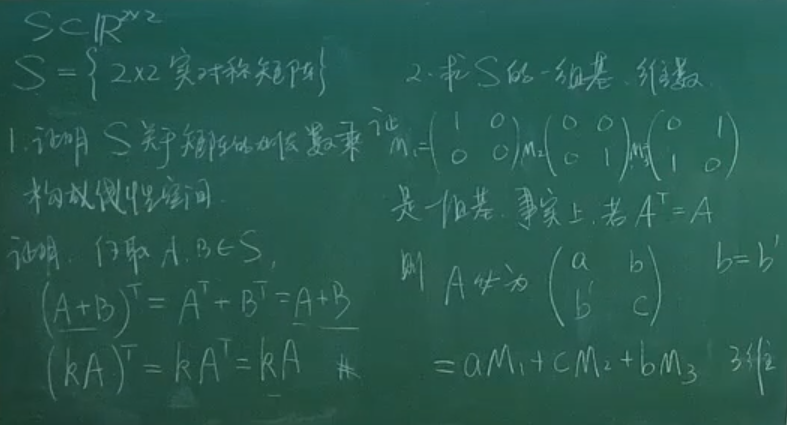 S⊂ℝ^{2×2}
S={2×2实对称矩阵}
1.证明 S关于矩阵的加法数乘
构成线性空间.
证明. 任取 A,B∈S,
(A+B)^T=A^T+B^T=A+B
(kA)^T=kA^T=kA #
2.求S的一组基.维数.
证 M_1=(1 0; 0 0) M_2(0 0; 0 1) M_3(0 1; 1 0)
是一组基.事实上,若A^T=A
则 A必为 (a b; b' c) b=b'
=aM_1+cM_2+bM_3 3维